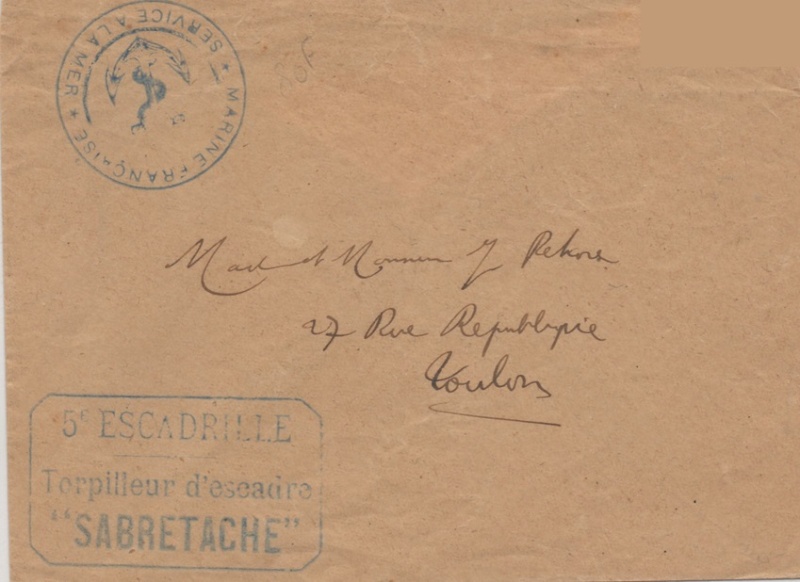 MARINE FRANÇAISE ★ SERVICE A LA MER ★
80F
Mad et Monsieur J
27 Rue Republique
Toulon
5e ESCADRILLE
Torpilleur d'escadre
"SABRETACHE"